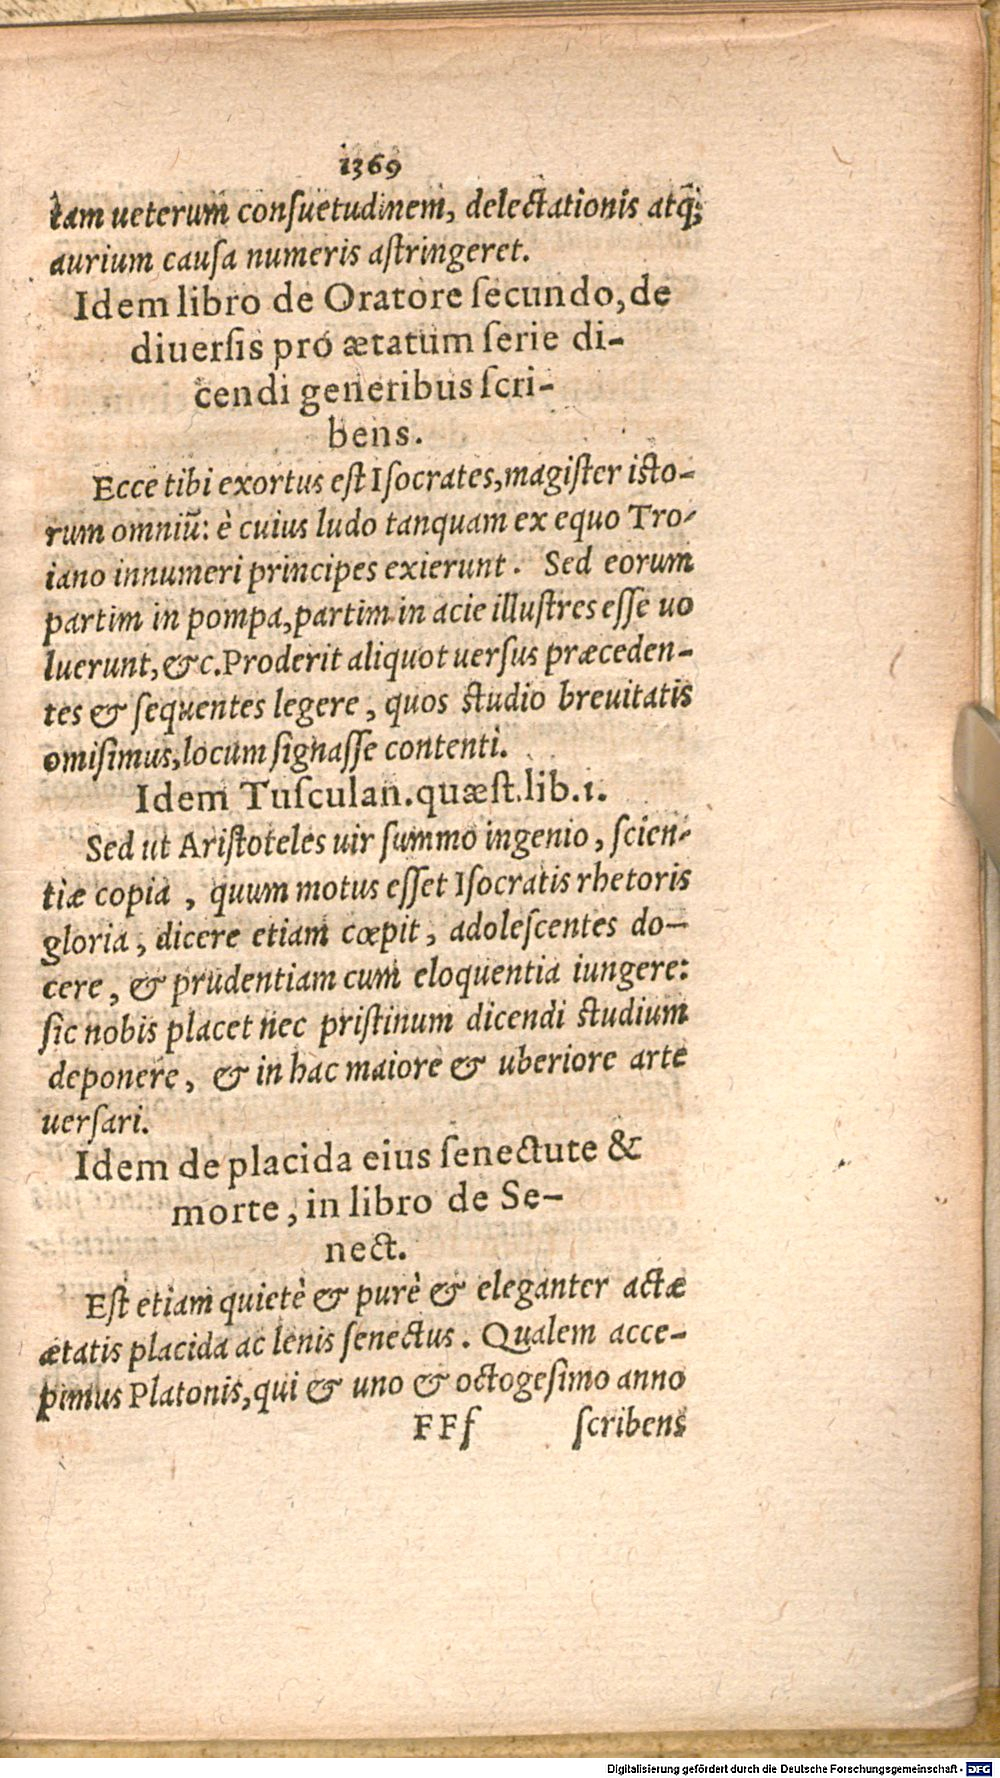 1369
tam ueterum conſuetudinem, delectationis atq́;
aurium cauſa numeris aſtringeret.
Idem libro de Oratore ſecundo, de
diuerſis pro ætatum ſerie di-
cendi generibus ſcri-
bens.
Ecce tibi exortus eſt Iſocrates, magiſter iſto-
rum omniū: è cuius ludo tanquam ex equo Tro-
iano innumeri principes exierunt. Sed eorum
partim in pompa, partim in acie illuſtres eſſe uo
luerunt, &c. Proderit aliquot uerſus præceden-
tes & ſequentes legere, quos ſtudio breuitatis
omiſimus, locum ſignaſſe contenti.
Idem Tuſculan. quæſt. lib. 1.
Sed ut Ariſtoteles uir ſummo ingenio, ſcien-
tiæ copia, quum motus eſſet Iſocratis rhetoris
gloria, dicere etiam cœpit, adoleſcentes do-
cere, & prudentiam cum eloquentia iungere:
ſic nobis placet nec priſtinum dicendi ſtudium
deponere, & in hac maiore & uberiore arte
uerſari.
Idem de placida eius ſenectute &
morte, in libro de Se-
nect.
Eſt etiam quietè & purè & eleganter actæ
ætatis placida ac lenis ſenectus. Qualem acce-
pimus Platonis, qui & uno & octogeſimo anno
FFf ſcribens
Digitalisierung gefördert durch die Deutsche Forschungsgemeinschaft - DFG